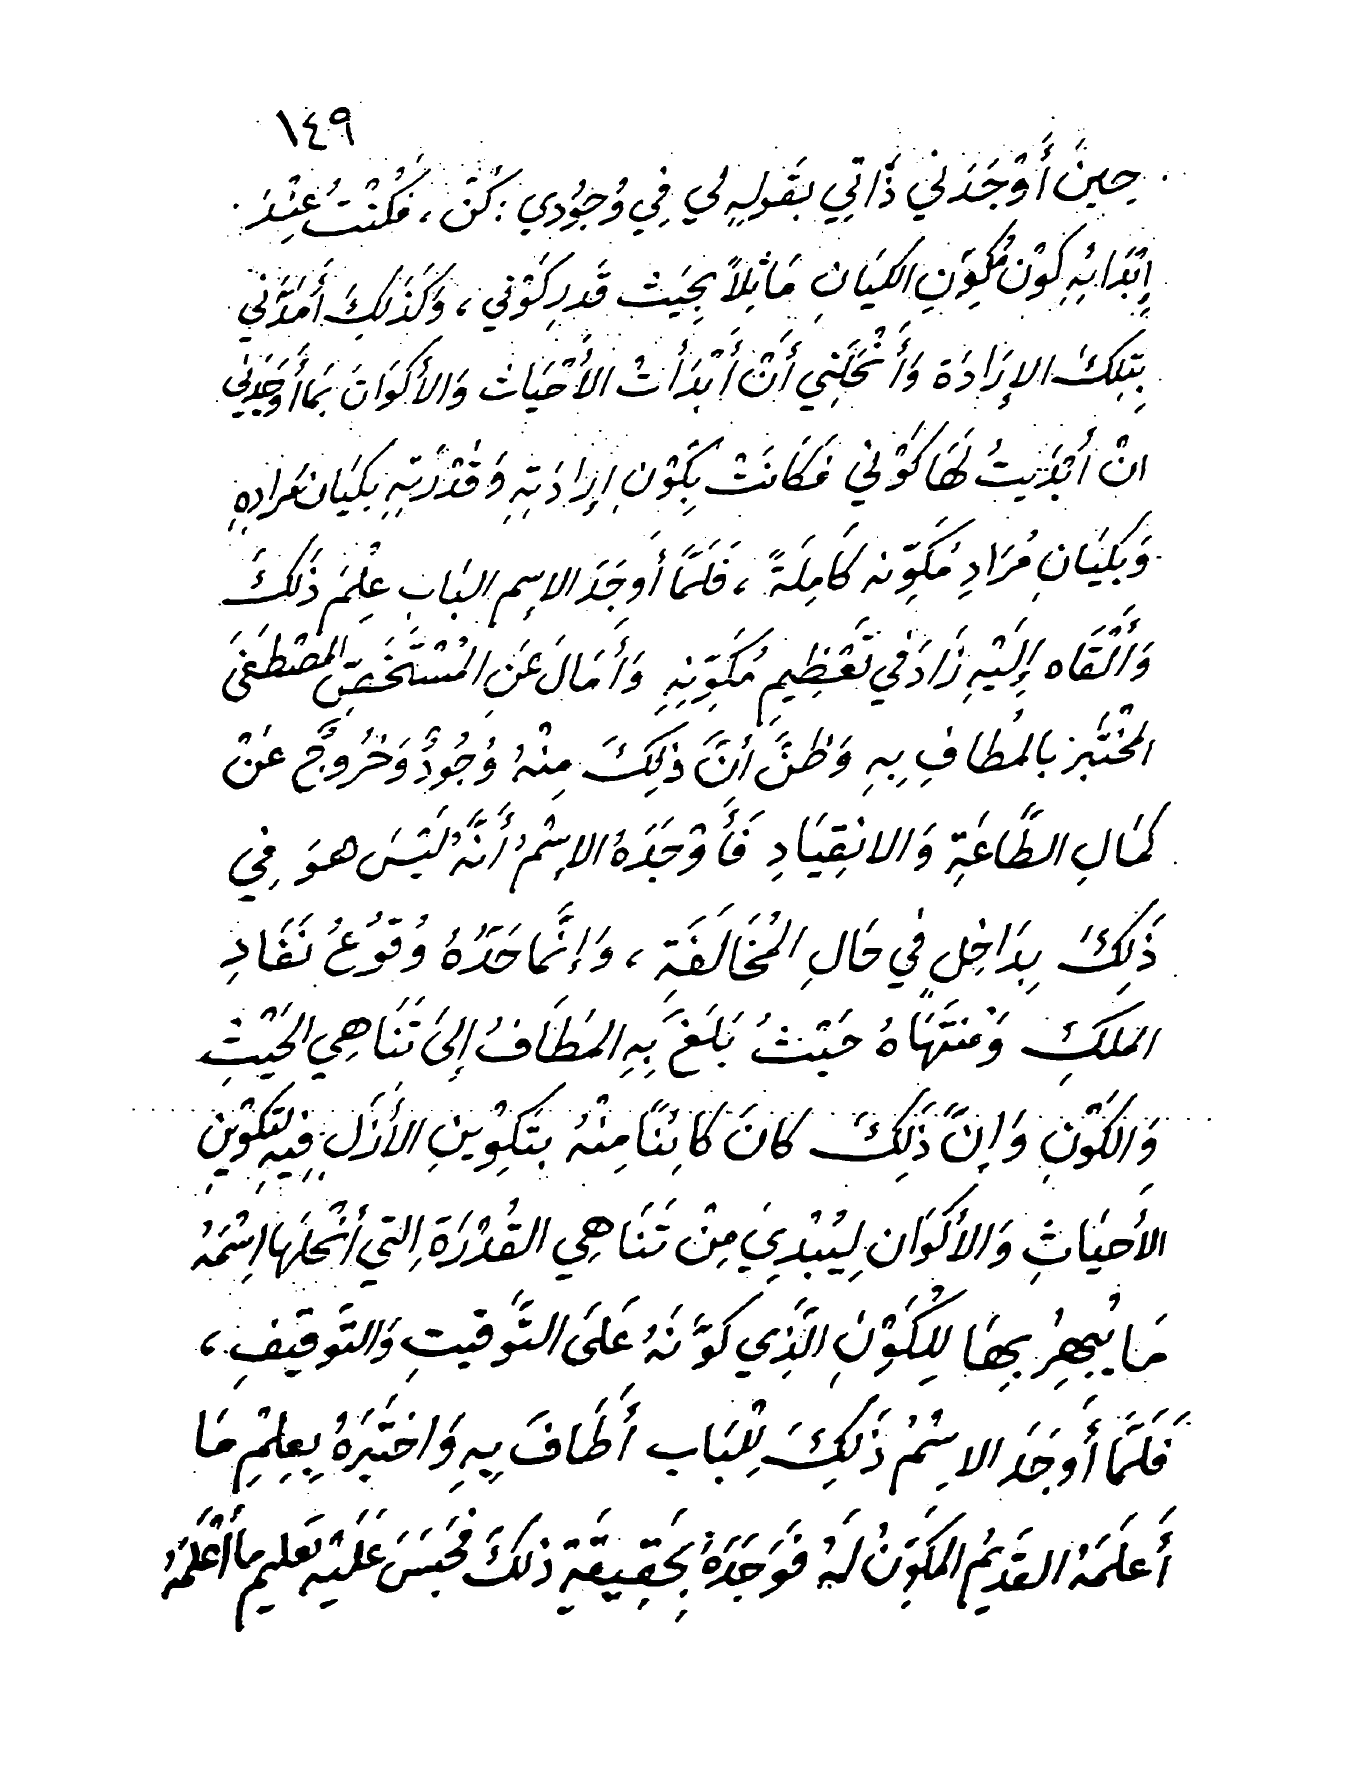 ١٤٩
حِينَ أَوْجَدَنِي ذَاتِي بِقَولِهِ لِي فِي وُجُودِي : كُنْ ، فَكُنْتُ عِنْدَ
إِبْتَدَائِهِ كَوْن مُكَوِّنِ الكِيَانِ مَاثِلاً بِحَيث قَدرِ كَوْنِي ، وَكَذَلِكَ أَمَدَّنِي
بِتِلكَ الإِرَادَة وَأَنْحَلَنِي أَنْ أَبْدَأتُ الأَحْيَاث وَالأَكْوَانَ بِمَا أَوْجَدَنِي
انْ أَبْدَيتُ لَهَا كَوْنِي فَكَانَتْ بِكَوْنِ إِرَادَتِهِ وَقُدْرَتِهِ بِكيَان مُرَادِهِ
وَبِكَيَانِ مُرَادِ مُكَوِّنه كَامِلَةً ، فَلَمَّا أَوجَدَ الاِسِم البَاب عِلْمَ ذَلكَ
وَأَلْقَاه إِلَيْهِ زَادَ فِي تَعْظِيمِ مُكَوِّنِهِ وَأَمَالَ عَنِ المُسْتَخَصِّ المُصْطَفَى
المُخْتَبَر بالمُطَافِ بِهِ وَظَنَّ أَنَّ ذَلِكَ مِنْهُ وُجُودٌ وَخُرُوجٌ عَنْ
كَمَالِ الطَّاعَةِ وَالانقِيَادِ فَأَوْجَدَهُ الاِسْمُ أَنَّهُ لَيْسَ هوَ فِي
ذَلِكَ بِدَاخِلٍ فِي حَالِ المُخَالَفَةِ ، وَإِنَّمَا حَدّهُ وُقوُعُ نَفَادِ
المَلكِ وَمُنتَهَاهُ حَيْثُ بَلَغَ بِهِ المَطَافُ إِلَى تَنَاهِي الحَيْثِ
وَالكَوْنِ وَإِنَّ ذَلِكَ كانَ كَائِنًا مِنْهُ بِتَكوِينِ الأَزَلِ فِيهِ لِتَكْوِينِ
الأَحيَاثِ وَالأَكوَان لِيُبْدِيَ مِنْ تَنَاهِي القُدْرَةِ التِي أَنْحَلَهَا اِسْمَهُ
مَا يُبهِرُ بِهَا لِلكَوْنِ الَّذِي كَوَّنَهُ عَلَى التَّوقيتِ وَالتَّوقِيفِ ،
فَلَمَّا أَوجَدَ الاِسْمُ ذَلِكَ لِلْبَاب أَطَافَ بِهِ وَاختَبَرَهُ بِعِلْمِ مَا
أَعلَمَهُ القَدِيمُ المكَوِّنُ لَهُ فَوَجَدَهُ بِحَقِيقَةِ ذلكَ فَحَبَسَ عَلَيْهِ تَعلِيم مَا أَعْلَمَهُ